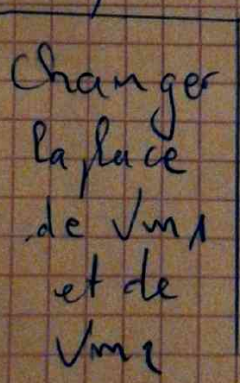 Changer
la place
de Vm1
et de
Vm2